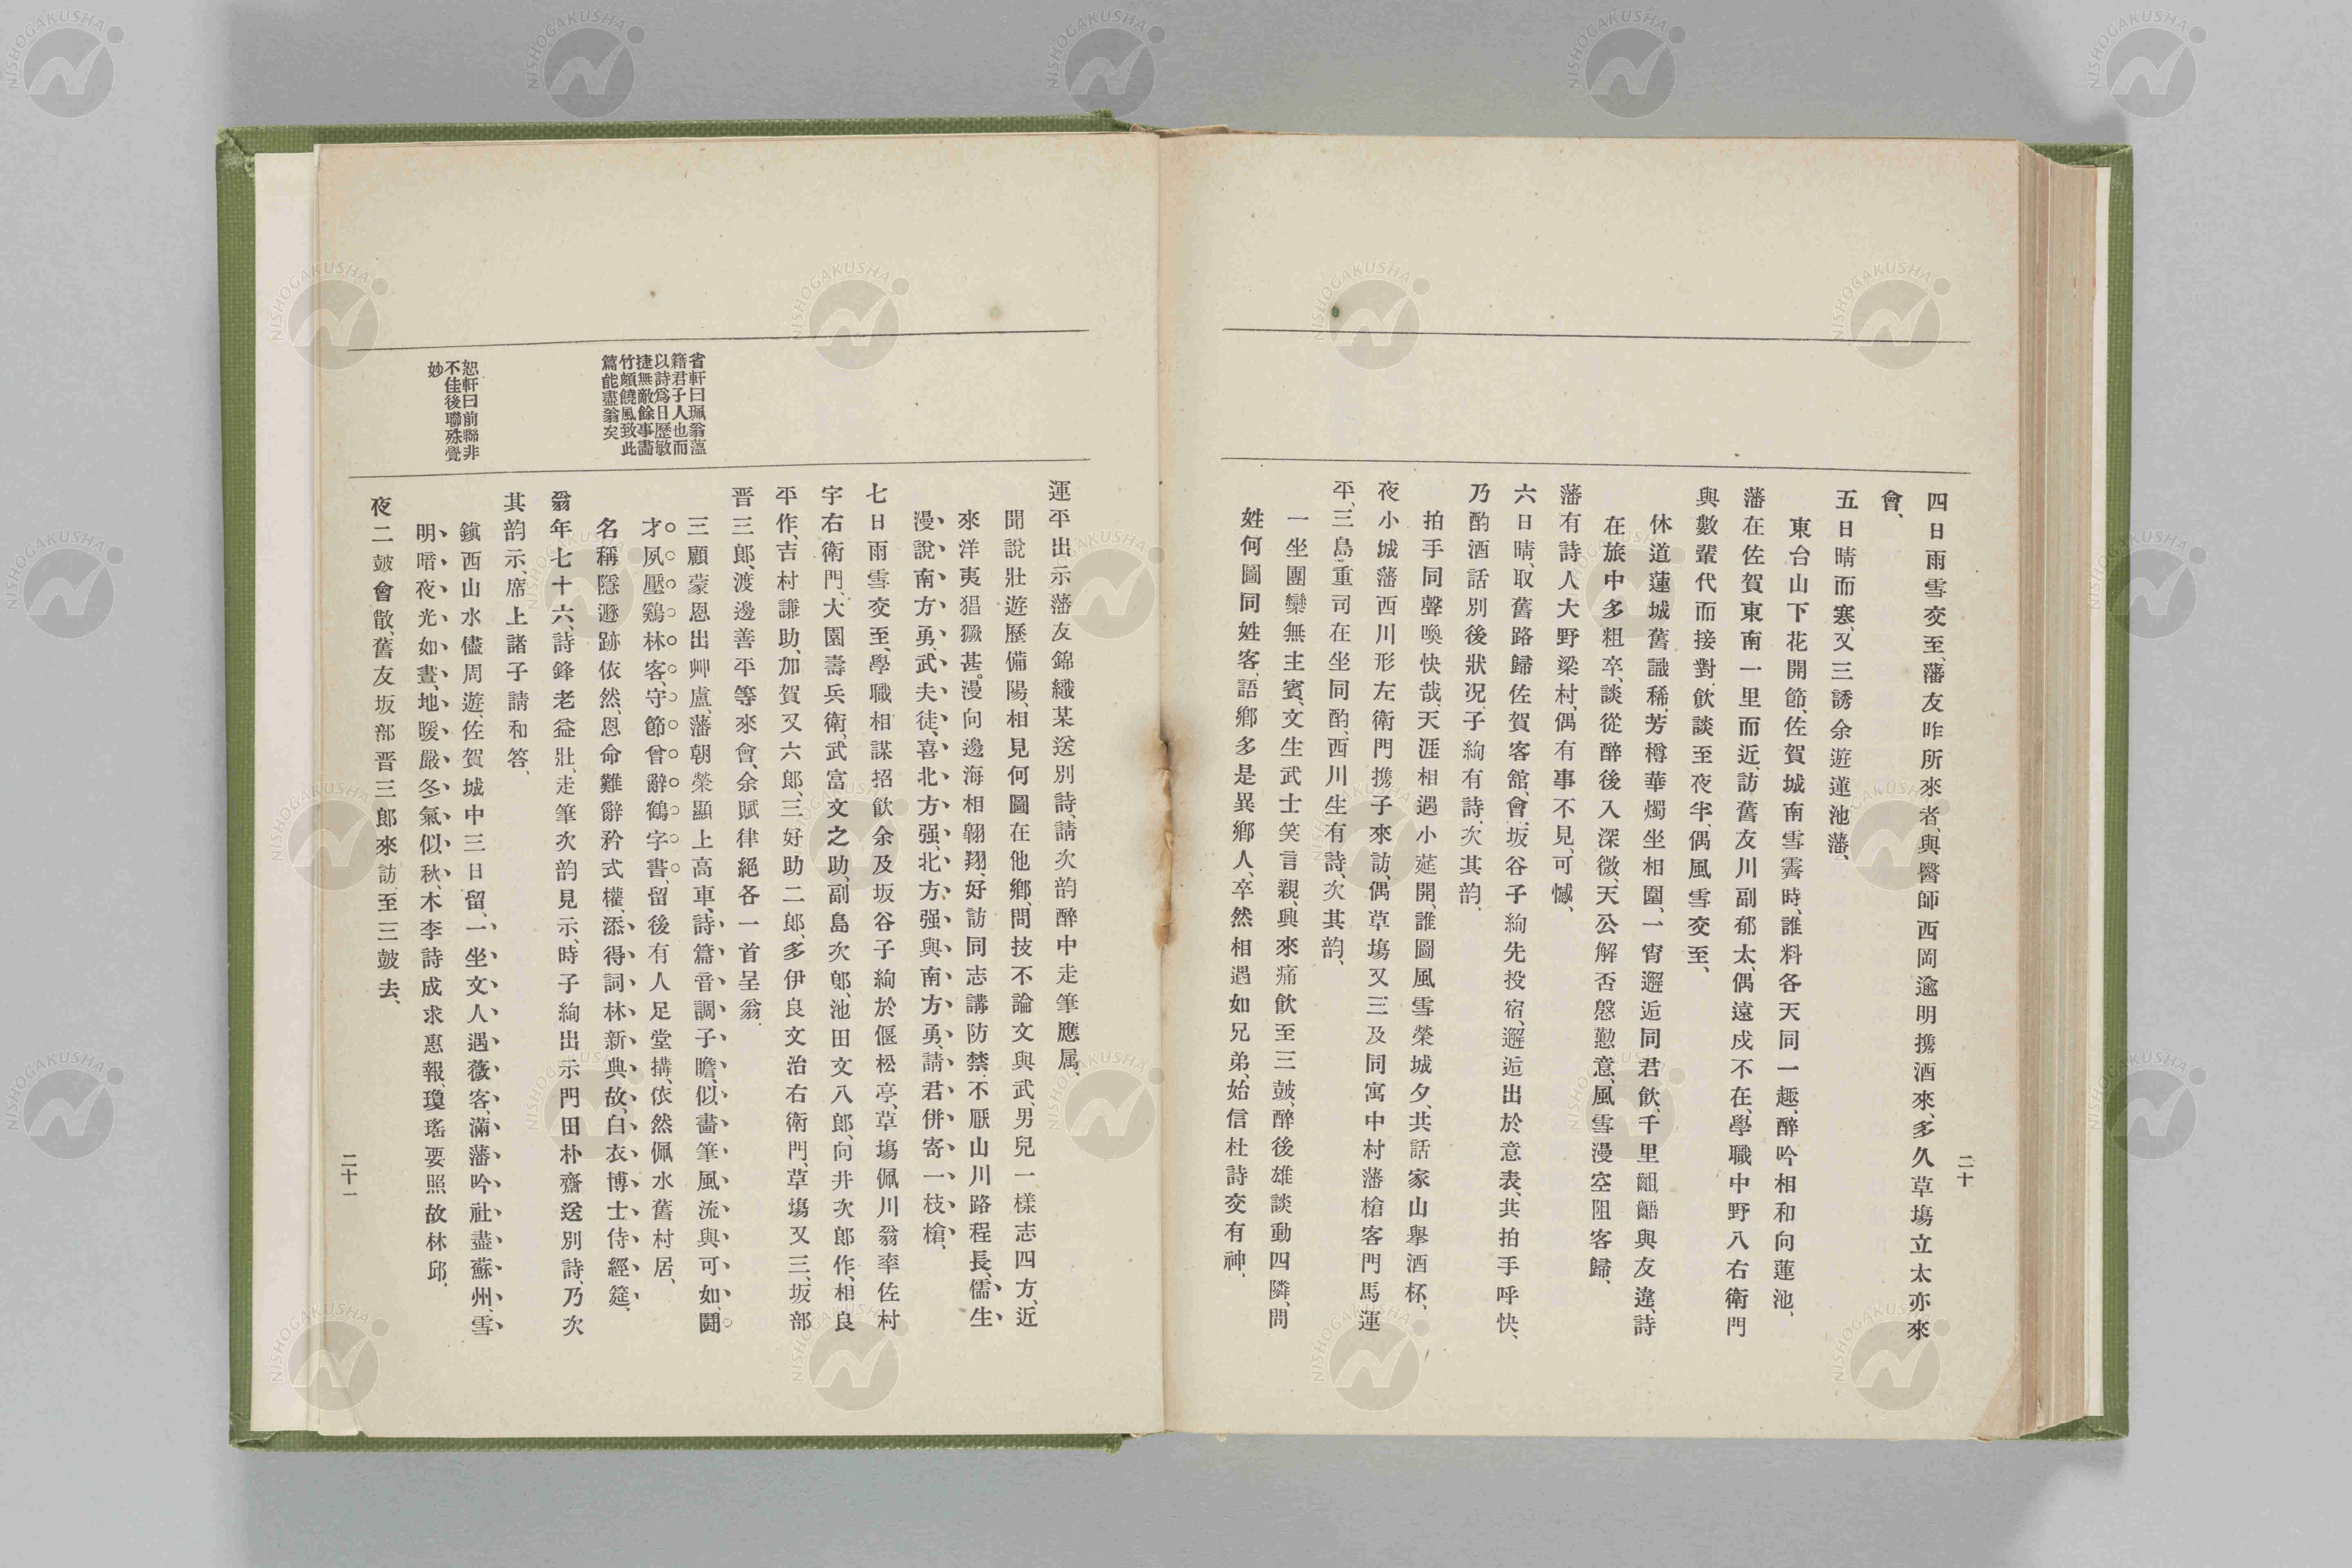 四日雨雪交至、藩友昨所來者、與醫師西岡逾明携酒來、多久草塲立太亦來
會、
五日晴而寒、又三誘余遊蓮池藩、
東台山下花開節、佐賀城南雪霽時、誰料各天同一趣、醉吟相和向蓮池、
藩在佐賀東南一里而近、訪舊友川副郁太、偶遠戍不在、學職中野八右衛門
與數輩代而接對、飲談至夜半、偶風雪交至、
休道蓮城舊識稀、芳樽華燭坐相圍、一宵邂逅同君飲、千里齟齬與友違、詩
在旅中多粗卒、談從醉後入深微、天公解否慇懃意、風雪漫空阻客歸、
藩有詩人大野梁村、偶有事不見、可憾、
六日晴、取舊路歸佐賀客舘、會坂谷子絢先投宿、邂逅出於意表、共拍手呼快、
乃酌酒話別後狀况、子絢有詩、次其韵、
拍手同聲喚快哉、天涯相遇小莚開、誰圖風雪榮城夕、共話家山擧酒杯、
夜小城藩西川形左衛門携子來訪、偶草塲又三及同寓中村藩槍客門馬運
平、三島重司在坐同酌、西川生有詩、次其韵、
一坐團欒無主賓、文生武士笑言親、興來痛飲至三皷、醉後雄談動四隣、問
姓何圖同姓客、語鄕多是異鄕人、卒然相遇如兄弟、始信杜詩交有神、
二十
運平出示藩友錦織某送別詩、請次韵醉中走筆應属、
聞說壯遊歷備陽、相見何圖在他鄕、問技不論文與武、男兒一樣志四方、近
來洋夷猖獗甚。漫向邊海相翺翔、好訪同志講防禁、不厭山川路程長、儒生
漫說南方勇、武夫徒喜北方强、北方强與南方勇、請君併寄一枝槍、
七日雨雪交至、學職相謀招飲余及坂谷子絢於偃松亭、草塲佩川翁率佐村
宇右衛門、大園壽兵衛、武富文之助、副島次郞、池田文八郎、向井次郎作、相良
平作、吉村謙助、加賀又六郎、三好助二郎、多伊良文治右衛門、草塲又三、坂部
晋三郎、渡邊善平等來會、余賦律絕各一首呈翁、
三顧蒙恩出艸盧、藩朝榮顯上高車、詩篇音調子瞻似、畵筆風流與可如、鬪
才夙壓鷄林客、守節曾辭鶴字書、留後有人足堂搆、依然佩水舊村居、
名稱隱遯跡依然、恩命難辭矜式權、添得詞林新典故、白衣博士侍經筵、
翁年七十六、詩鋒老益壯、走筆次韵見示、時子絢出示門田朴齋送別詩、乃次
其韵示、席上諸子請和答、
鎭西山水儘周遊、佐賀城中三日留、一坐文人遇薇客、滿藩吟社盡蘇州、雪
明、暗夜光如晝、地暖嚴冬氣似秋、木李詩成求惠報、瓊瑤要照故林邱、
夜二皷會散、舊友坂部晋三郎來訪、至三皷去、
省軒曰珮翁薀
籍君子人也而
以詩爲日歷敏
捷無敵餘事畵
竹頗饒風致此
篇能盡翁矣
恕軒曰前聯非
不佳後聯殊覺
妙
二十一
NISHOGAKUSHA